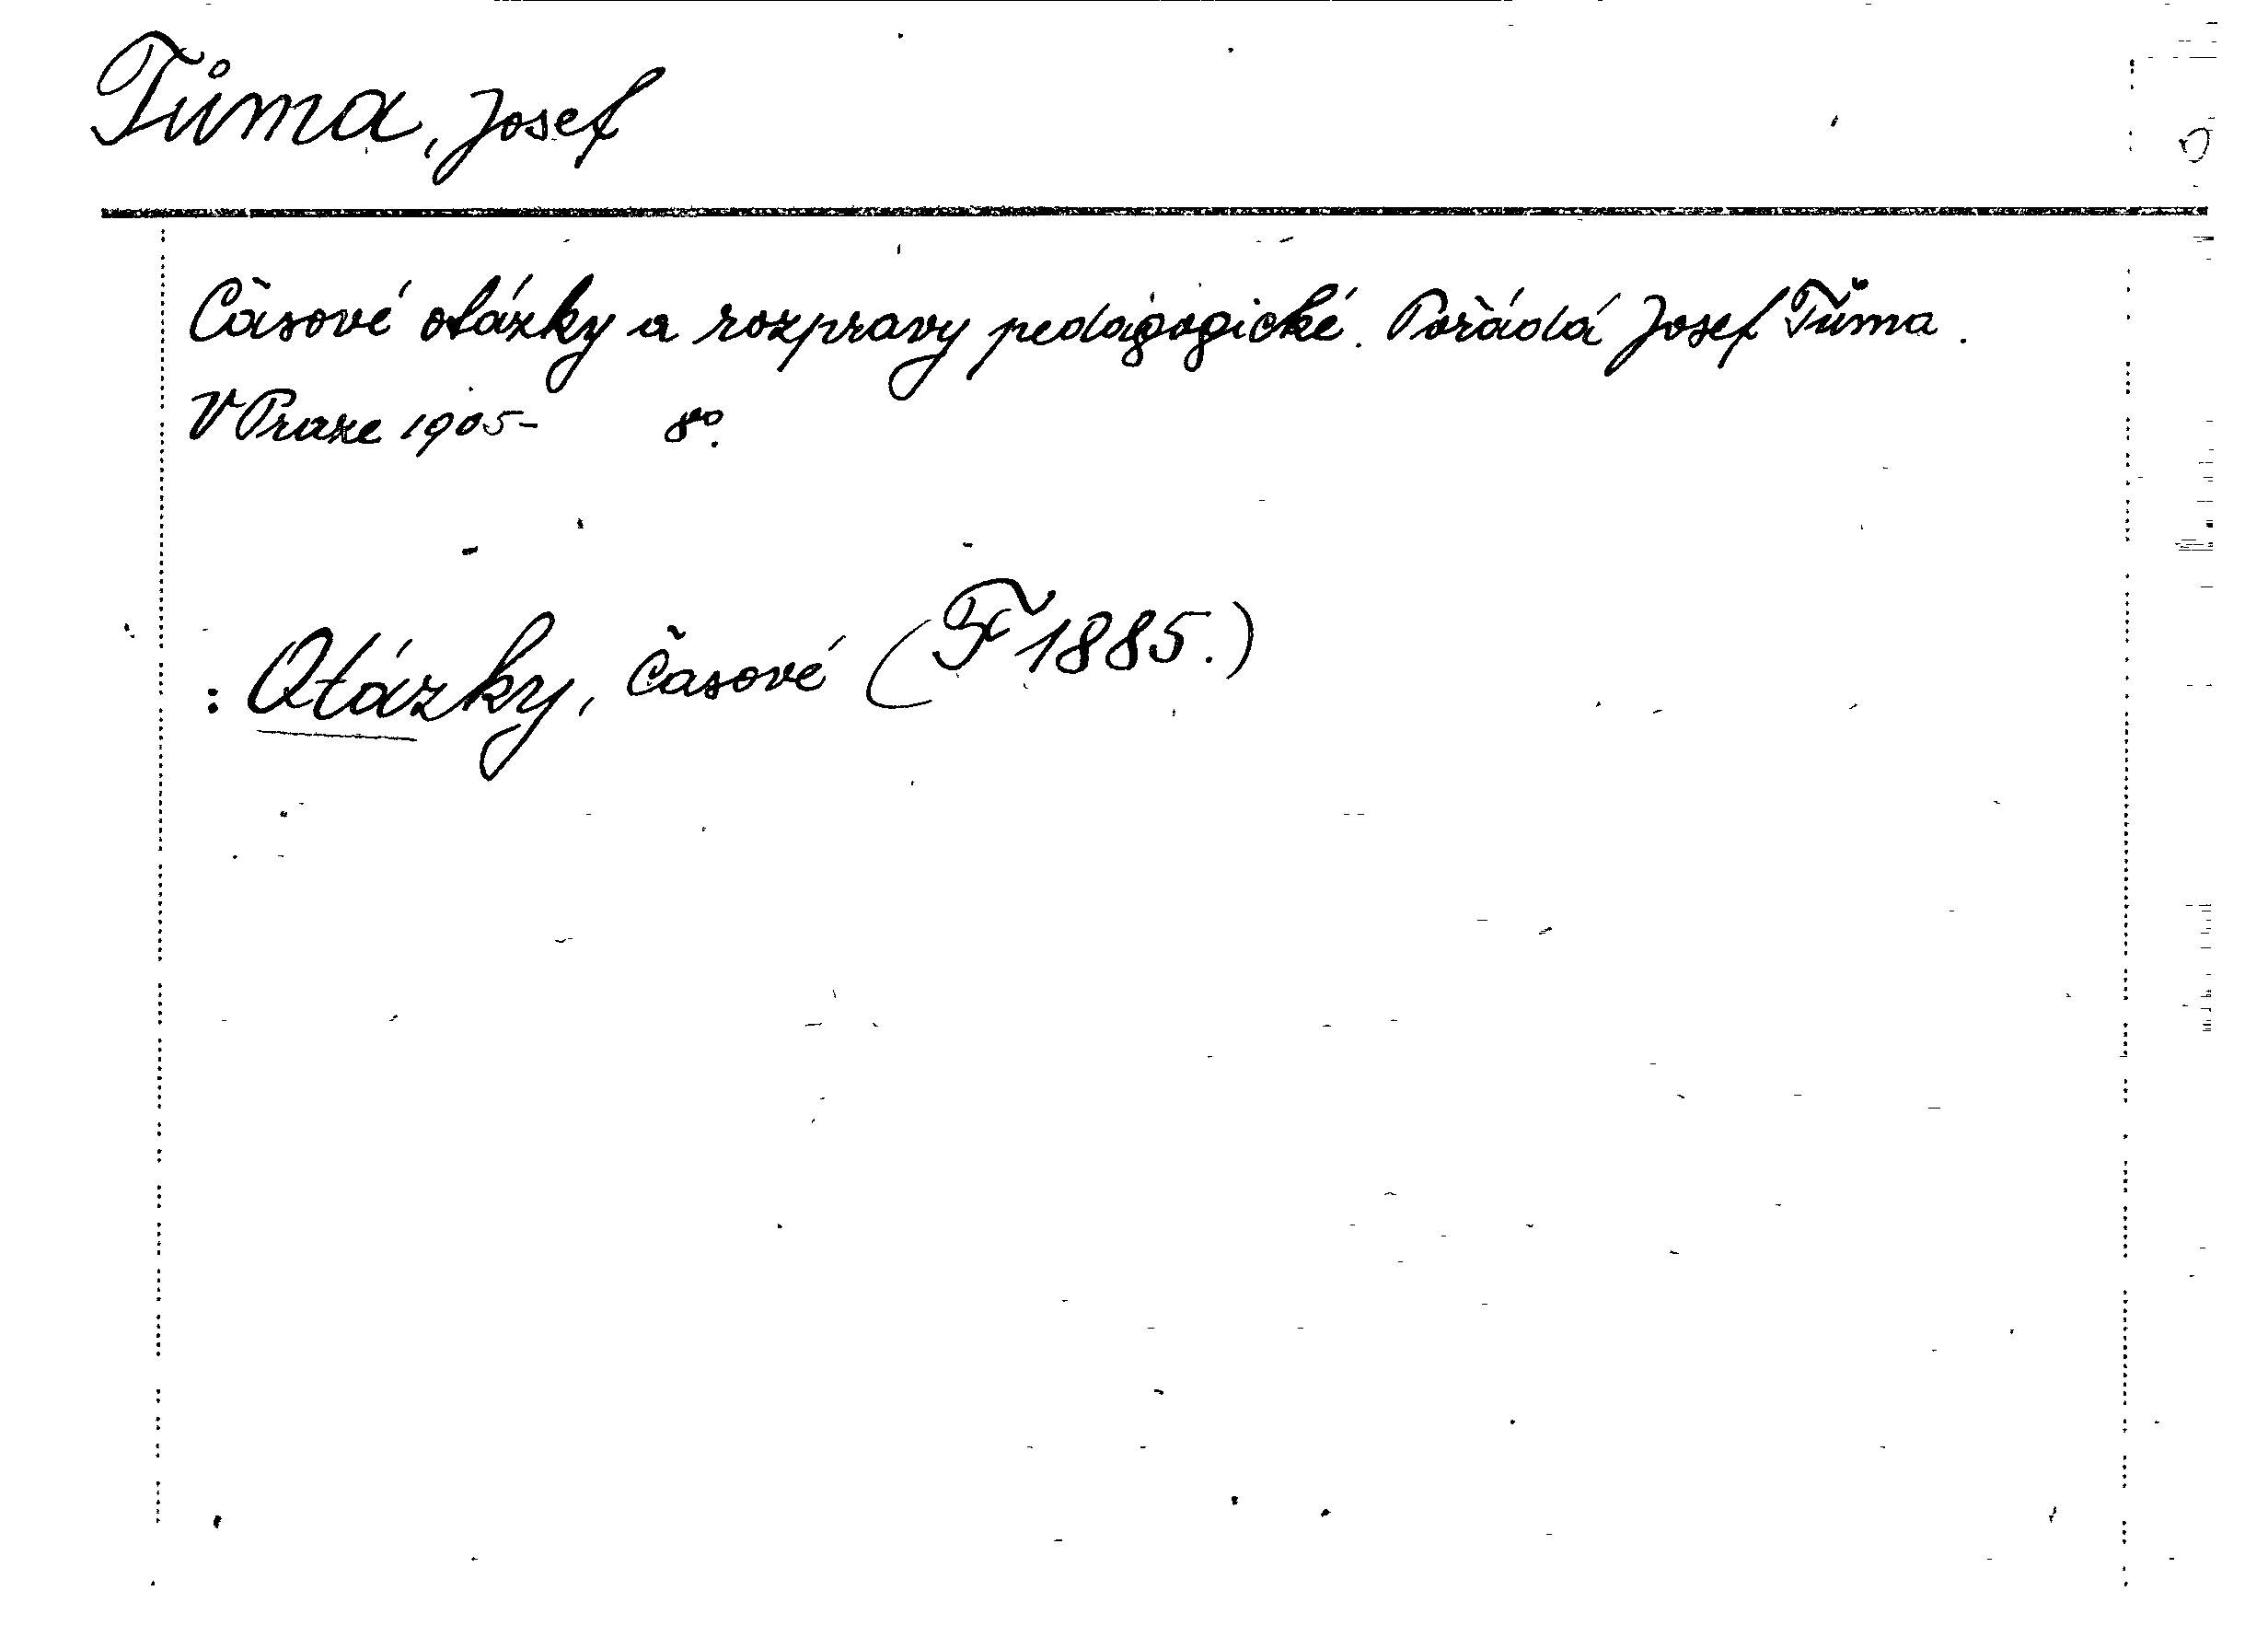 Tůma, Josef
Časové otázky a rozpravy pedagogické. Pořádá Josef Tůma.
V Praze 1905- 8°.
: Otázky, časové (F 1885.)